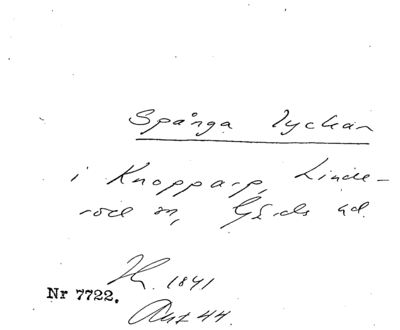 Spånga lyckan
i Knopparp, Linde-
röd sn, Gärds hd.
1841
Nr 7722.
44.